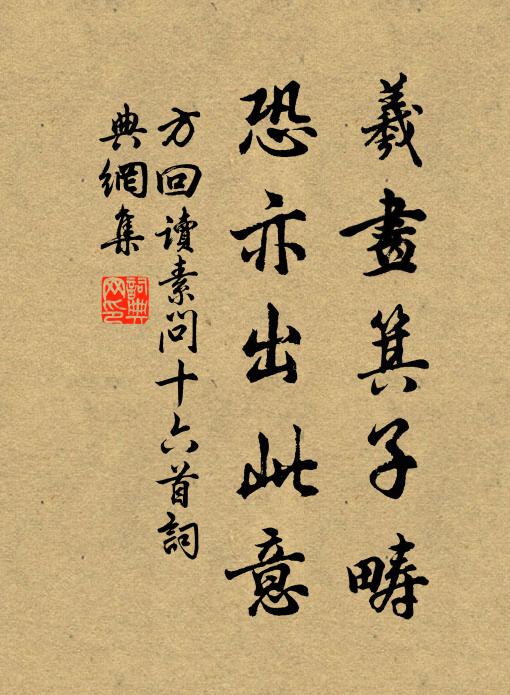 羲畫箕子疇
恐亦出此意
方回讀素問十六首詞
典網集
詞典網印